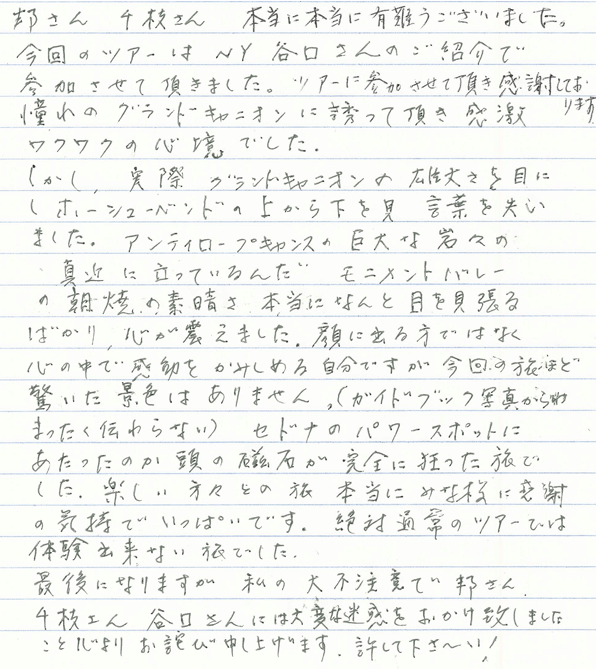 邦さん 千枝さん 本当に本当に有難うございました。
今回のツアーは NY 谷口さんのご紹介で
参加させて頂きました。ツアーに参加させて頂き感謝しております
憧れのグランドキャニオンに誘って頂き 感激
ワクワクの心境でした.
しかし, 実際 グランドキャニオンの 雄大さを目に
し ホーシューベンドの上から下を見 言葉を失い
ました。 アンティロープキャンスの巨大な岩々の
真近に立っているんだ モニメントバレー
の朝焼の素晴さ 本当になんと目を見張る
ばかり, 心が震えました. 顔に出る方ではなく
心の中で感動をかみしめる自分ですが今回の旅ほど
驚いた景色はありません。(ガイドブック写真からは
まったく伝わらない) セドナのパワースポットに
あたったのか頭の磁石が完全に狂った旅で
した. 楽しい方々との旅 本当にみな様に感謝
の気持でいっぱいです. 絶対通常のツアーでは
体験出来ない旅でした.
最後になりますが 私の大不注意で 邦さん
千枝さん 谷口さんには大変な迷惑をおかけ致しました
こと心よりお詫び申し上げます. 許して下さ〜い!